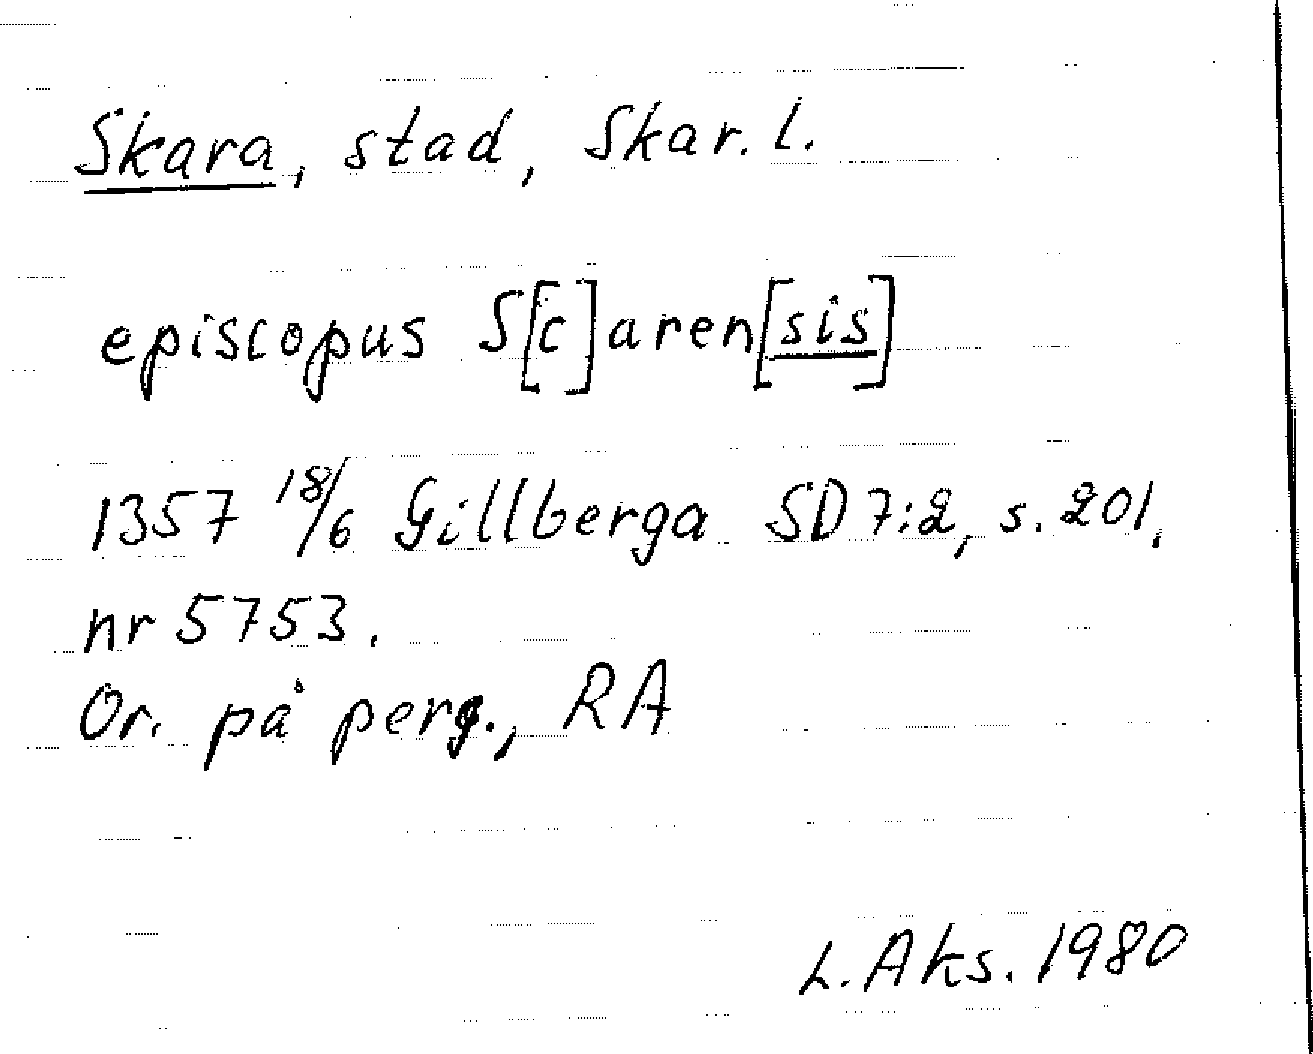 Skara, stad, Skar. l.
episcopus S[c]aren[sis]
1357 18/6 Gillberga SD 7:2, s. 201,
nr 5753.
Or. på perg., RA
L. Aks. 1980